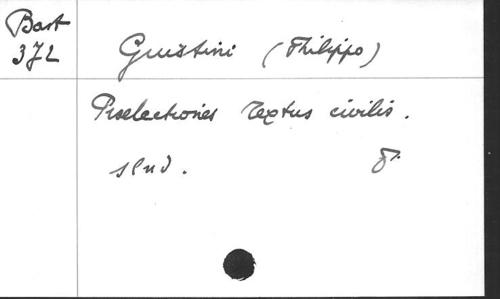 Bart
372
Giustini (Philippo)
Prælectiones Textus civilis.
sl n d.
8°.